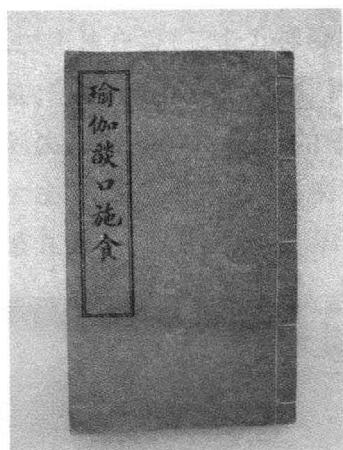 瑜伽燄口施食